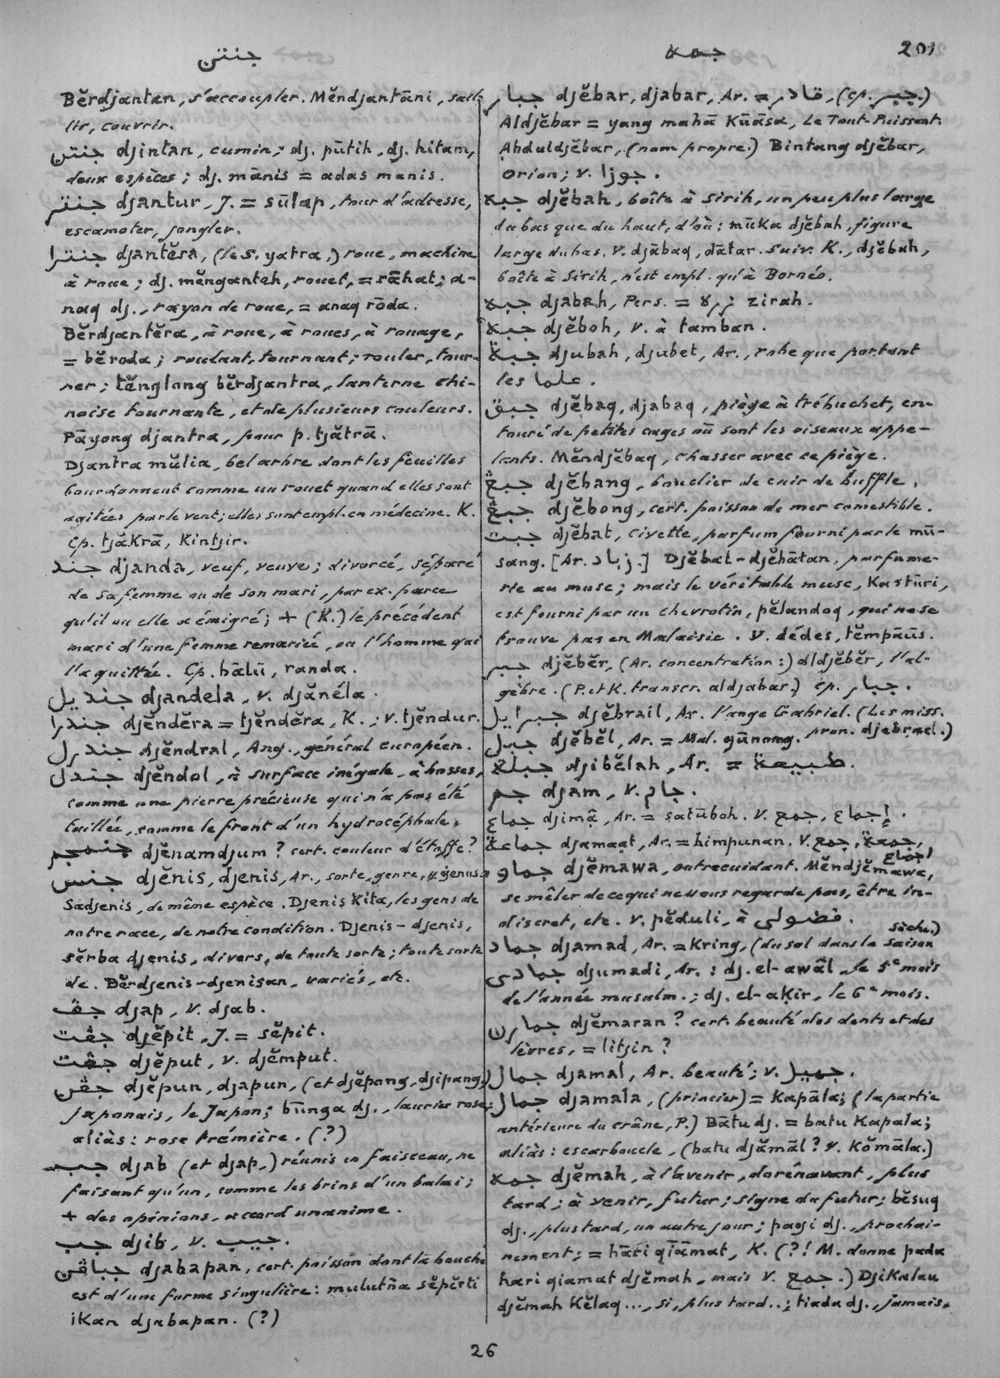 جنتن
جمه
201
Bĕrdjantan, s'accoupler. Mĕndjantāni, sail-
lir, couvrir.
جنتن djintan, cumin; dj. pūtih, dj. hitam,
deux espèces; dj. mānis = adas manis.
جنتر djantur, J. = sūlap, tour d'adresse,
escamoter, jongler.
جنترا djantĕra, (le S. yatra,) roue, machine
à roue; dj. mĕngantah, rouet, = rāhat; a-
naq dj., rayon de roue, = anaq rōda.
Bĕrdjantĕra, à roue, à roues, à rouage,
= bĕroda; roulant, tournant; rouler, tour-
ner; tĕnglang bĕrdjantra, lanterne chi-
noise tournante, et de plusieurs couleurs.
Pāyong djantra, pour p. tjătrā.
Djantra mŭlia, bel arbre dont les feuilles
bourdonnent comme un rouet quand elles sont
agitées par le vent; elles sont empl. en médecine. K.
Cp. tjăkrā, Kintjir.
جند djanda, veuf, veuve; divorcé, séparé
de sa femme ou de son mari, par ex. parce
qu'il ou elle a émigré; + (K.) le précédent
mari d'une femme remariée, ou l'homme qui
l'a quittée. Cp. bālū, randa.
جنديل djandela, v. djănéla.
جندرا djĕndĕra = tjĕndĕra, K.; v. tjĕndur.
جندرل djĕndral, Ang., général européen.
جندل djĕndol, à surface inégale, à bosses,
comme une pierre précieuse qui n'a pas été
taillée, comme le front d'un hydrocéphale.
جنمجم djĕnamdjum? cert. couleur d'étoffe?
جنس djĕnis, djenis, Ar., sorte, genre, "genus"
Sadjenis, de même espèce. Djenis Kita, les gens de
notre race, de notre condition. Djenis-djenis,
sĕrba djenis, divers, de toute sorte; toute sorte
de. Bĕrdjenis-djenisan, variés, etc.
جڤ djap, v. djab.
جڤت djĕpit, J. = sĕpit.
جڤت djĕput, v. djĕmput.
جڤن djĕpun, djapun, (et djĕpang, djipang,)
japonais, le Japon; būnga dj., laurier rose;
aliàs: rose trémière. (?)
جب djab (et djap,) réunis en faisceau, ne
faisant qu'un, comme les brins d'un balai;
+ des opinions, accord unanime.
جب djib, v. جيب.
جباڤن djabapan, cert. poisson dont la bouche
est d'une forme singulière: mulutña sĕpĕrti
ikan djabapan. (?)
جبار djĕbar, djabar, Ar. = قادر, (cp. جبر.)
Aldjĕbar = yang mahā Kūāsa, Le Tout-Puissant.
Abduldjĕbar, (nom propre.) Bintang djĕbar,
Orion; v. جوزا.
جبه djĕbah, boîte à Sirih, un peu plus large
du bas que du haut, d'où: mūka djĕbah, figure
large du bas, v. djābaq, dātar. Suiv. K., djĕbah,
boîte à Sirih, n'est empl. qu'à Bornéo.
جبه djabah, Pers. = زره zirah.
جبه djĕboh, v. à tamban.
جبة djubah, djubet, Ar., robe que portent
les علما.
جبق djĕbaq, djabaq, piège à trébuchet, en-
touré de petites cages où sont les oiseaux appe-
lants. Mĕndjĕbaq, chasser avec ce piège.
جبڠ djĕbang, bouclier de cuir de buffle.
جبڠ djĕbong, cert. poisson de mer comestible.
جبت djĕbat, civette, parfum fourni par le mū-
sang. [Ar. زباد.] Djĕbat-djĕbātan, parfume-
rie au musc; mais le véritable musc, Kastūri,
est fourni par un chevrotin, pĕlandoq, qui ne se
trouve pas en Malaisie. V. dédes, tĕmpāūs.
جبر djĕbĕr, (Ar. concentration:) aldjĕbĕr, l'al-
gèbre. (P. et K. transcr. aldjabar.) Cp. جبار.
جبرايل djĕbrail, Ar. l'ange Gabriel. (Les miss.
pron. djebrael.)
جبل djĕbĕl, Ar. = Mal. gūnong.
جبلة djibĕlah, Ar. = طبيعة.
جم djam, v. جام.
جماع djimā, Ar. = satūboh. V. جمع, إجماع.
جماعة djamaat, Ar. = himpunan. V. جمع, جمعة,
إجماع
جماو djĕmawa, outrecuidant. Mĕndjĕmawa,
se mêler de ce qui ne nous regarde pas, être in-
discret, etc. v. pĕduli, à فضولى.
جماد djamad, Ar. = Kring, (du sol dans la saison
sèche.)
جمادى djumadi, Ar.: dj. el-awāl, le 5e mois
de l'année musulm.; dj. el-akir, le 6e mois.
جمارن djĕmaran? cert. beauté des dents et des
lèvres, = litjin?
جمال djamal, Ar. beauté; v. جميل.
جمال djamala, (princier) = Kapāla; (la partie
antérieure du crâne, P.) Bātu dj. = batu Kapala;
aliàs: escarboucle, (batu djămāl? V. Kŏmāla.)
جمه djĕmah, à l'avenir, dorénavant, plus
tard; à venir, futur; signe du futur; bĕsuq
dj., plus tard, un autre jour; pagi dj., prochai-
nement; = hāri qīāmat, K. (?! M. donne pada
hari qiamat djĕmah, mais v. جمع.) Djikalau
djĕmah Kĕlaq..., si, plus tard..; tiada dj., jamais.
26